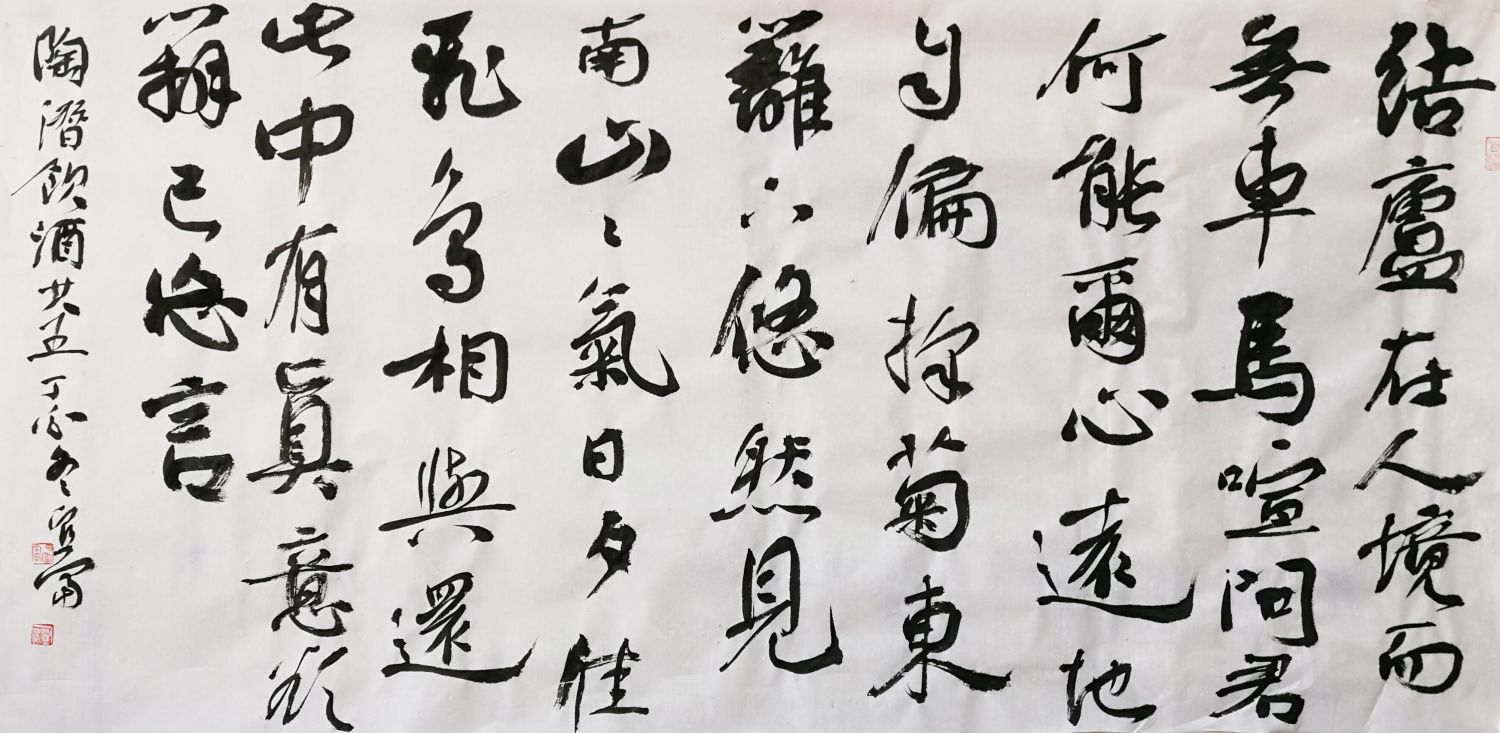 結廬在人境而
無車馬喧問君
何能爾心遠地
自偏採菊東
籬下悠然見
南山〻氣日夕佳
飛鳥相與還
此中有眞意欲
辨已忘言
陶潛飲酒其五 丁酉冬